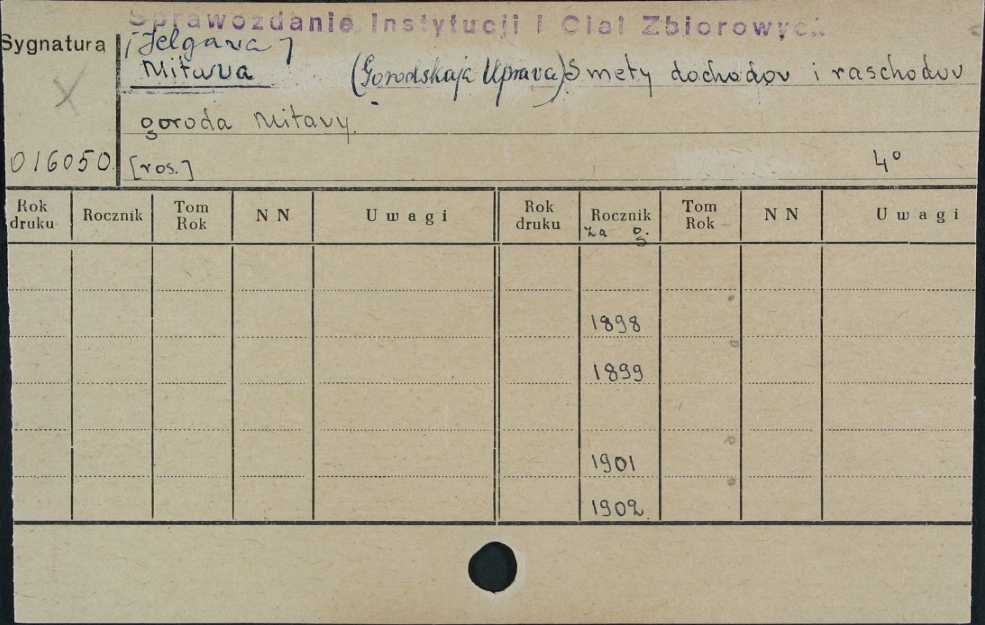 Sprawozdanie Instytucji i Ciał Zbiorowych
Sygnatura
[Jelgava]
Mitava (Gorodskaja Uprava) Smety dochodov i raschodov
goroda Mitavy.
016050 [ros.] 4°
Rok druku Rocznik Tom Rok NN Uwagi Rok druku Rocznik za g. Tom Rok NN Uwagi
1898
1899
1901
1902